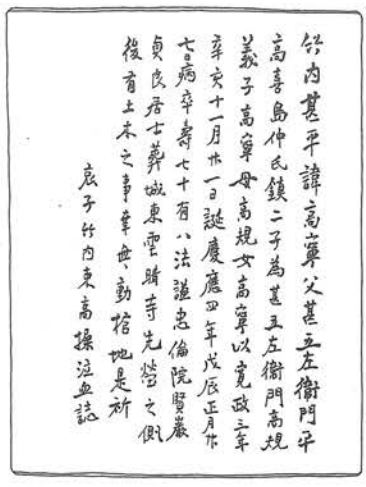 竹内甚平諱高寧父甚五左衛門平
高喜島仲氏鎮二子為甚五左衛門高規
義子高寧母高規女高寧以寛政三年
辛亥十一月廿一日誕慶應四年戊辰正月廿
七日病卒寿七十有八法謚忠倫院賢巌
貞良居士葬城東雲晴寺先塋之側
後有土木之事幸毋動棺地是祈
哀子竹内東高操泣血誌